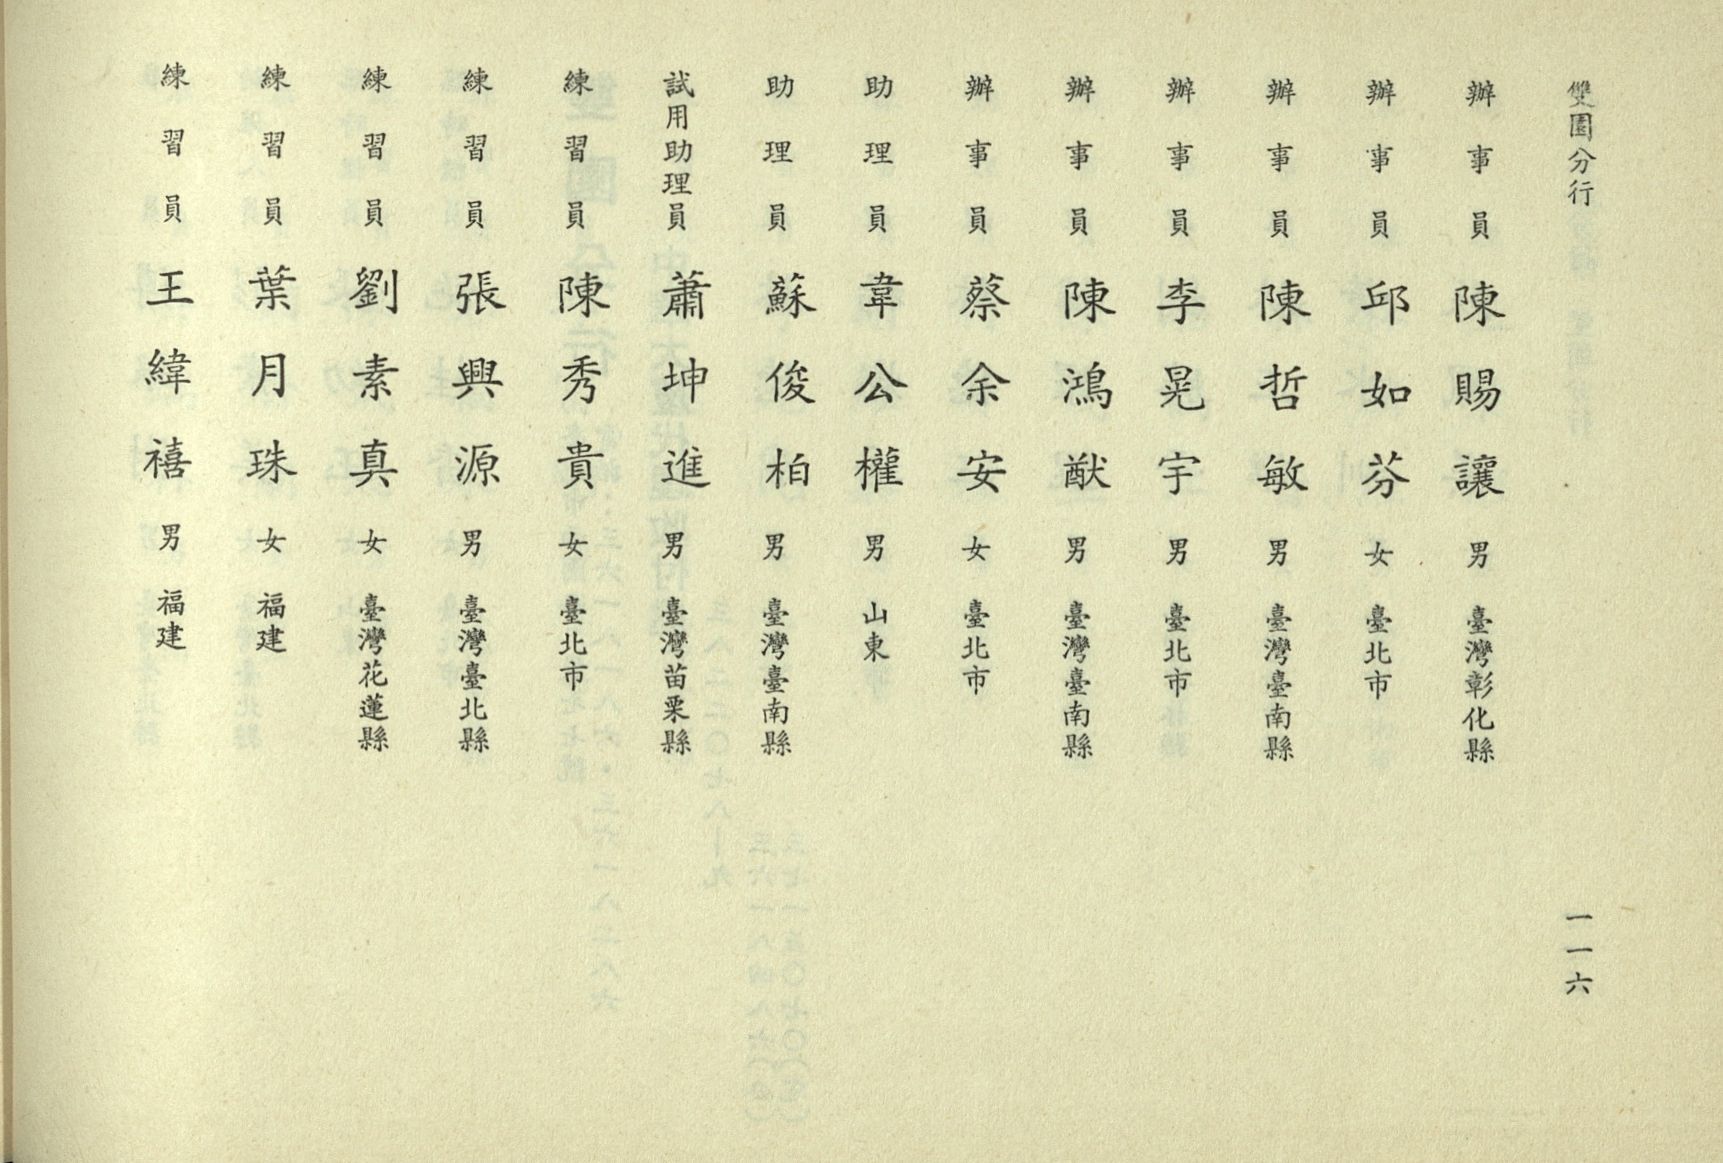 雙園分行
辦事員 陳賜讓 男 臺灣彰化縣
辦事員 邱如芬 女 臺北市
辦事員 陳哲敏 男 臺灣臺南縣
辦事員 李晃宇 男 臺北市
辦事員 陳鴻猷 男 臺灣臺南縣
辦事員 蔡余安 女 臺北市
助理員 韋公權 男 山東
助理員 蘇俊柏 男 臺灣臺南縣
試用助理員 蕭坤進 男 臺灣苗栗縣
練習員 陳秀貴 女 臺北市
練習員 張興源 男 臺灣臺北縣
練習員 劉素真 女 臺灣花蓮縣
練習員 葉月珠 女 福建
練習員 王緯禧 男 福建
一一六